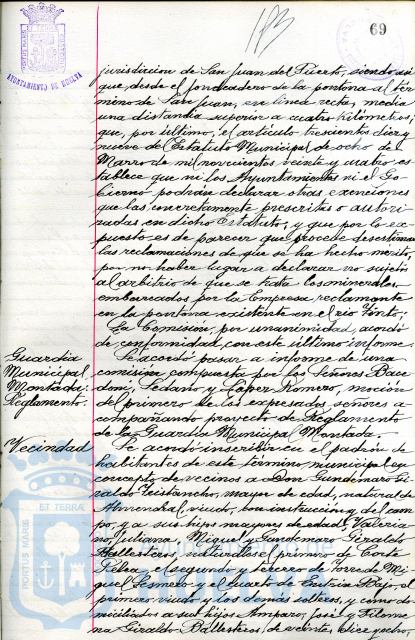 69
AYUNTAMIENTO DE HUELVA
jurisdiccion de San Juan del Puerto, siendo así
que, desde el fondeadero de la pontona al tér
mino de San Juan, en línea recta, media
una distancia superior a cuatro kilómetros;
que, por último, el artículo trescientos diez y
nueve del Estatuto Municipal de ocho de
Marzo de mil novecientos veinte y cuatro es
tablece que ni los Ayuntamientos ni el Go
bierno podrán declarar otras exenciones
que las concretamente prescritas o autori
zadas en dicho Estatuto; y que por lo ex
puesto es de parecer que procede desestimar
las reclamaciones de que se ha hecho mérito,
por no haber lugar a declarar no sujeto
al arbitrio de que se trata los minerales
embarcados por la Empresa reclamante
en la pontona existente en el río Tinto;
La Comisión, por unanimidad, acordó
de conformidad con este último informe.
Guardia
Municipal
Montada:
Reglamento.
Se acordó pasar a informe de una
comisión compuesta por los Señores
Sedano y López Romero, moción
del primero de los expresados señores a
compañando proyecto de Reglamento
de la Guardia Municipal Montada.
Vecindad
Se acordó inscribir en el padrón de
habitantes de este término municipal en
concepto de vecinos a Don Gundemaro Gi
raldo mayor de edad, natural de
Almendral, viudo, con instrucción y del cam
po, y a sus hijos mayores de edad Valeria
no, Juliana, Miguel y Gundemaro Giraldo
Ballesteros, naturales el primero de Corte
Pelea, el segundo y tercero de Torre de Mi
guel Sesmero y el cuarto de Entrín Bajo, el
primero viudo y los demás solteros, y como do
miciliados a sus hijos Amparo, José y Filome
na Giraldo Ballesteros, de veinte, diez y ocho
PORTUS MARIS ET TERRAE